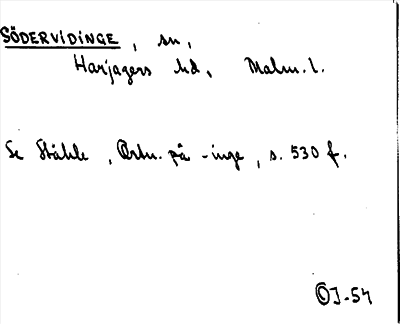 SÖDERVIDINGE, sn,
Harjagers hd, Malm. l.
Se Ståhle, Ortn. på -inge, s. 530 f.
OJ-54